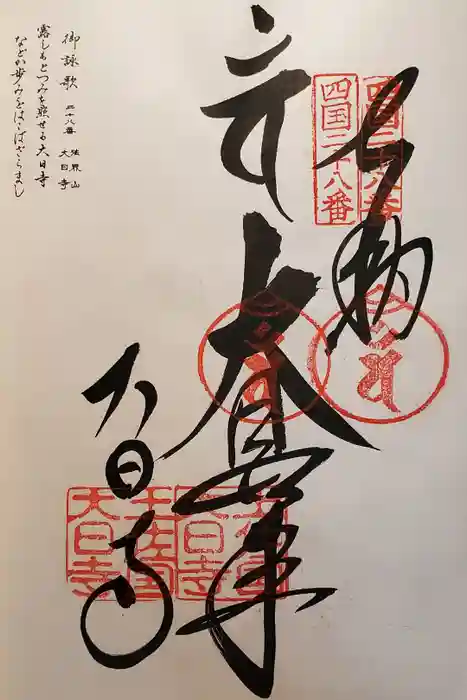 御詠歌 二十八番 法界山 大日寺
露しもとつみを照せる大日寺
などか歩みをはこばざらまし
奉納
大日如来
大日寺
四国二十八番
四国二十八番
土佐国
大日寺
土佐国
大日寺